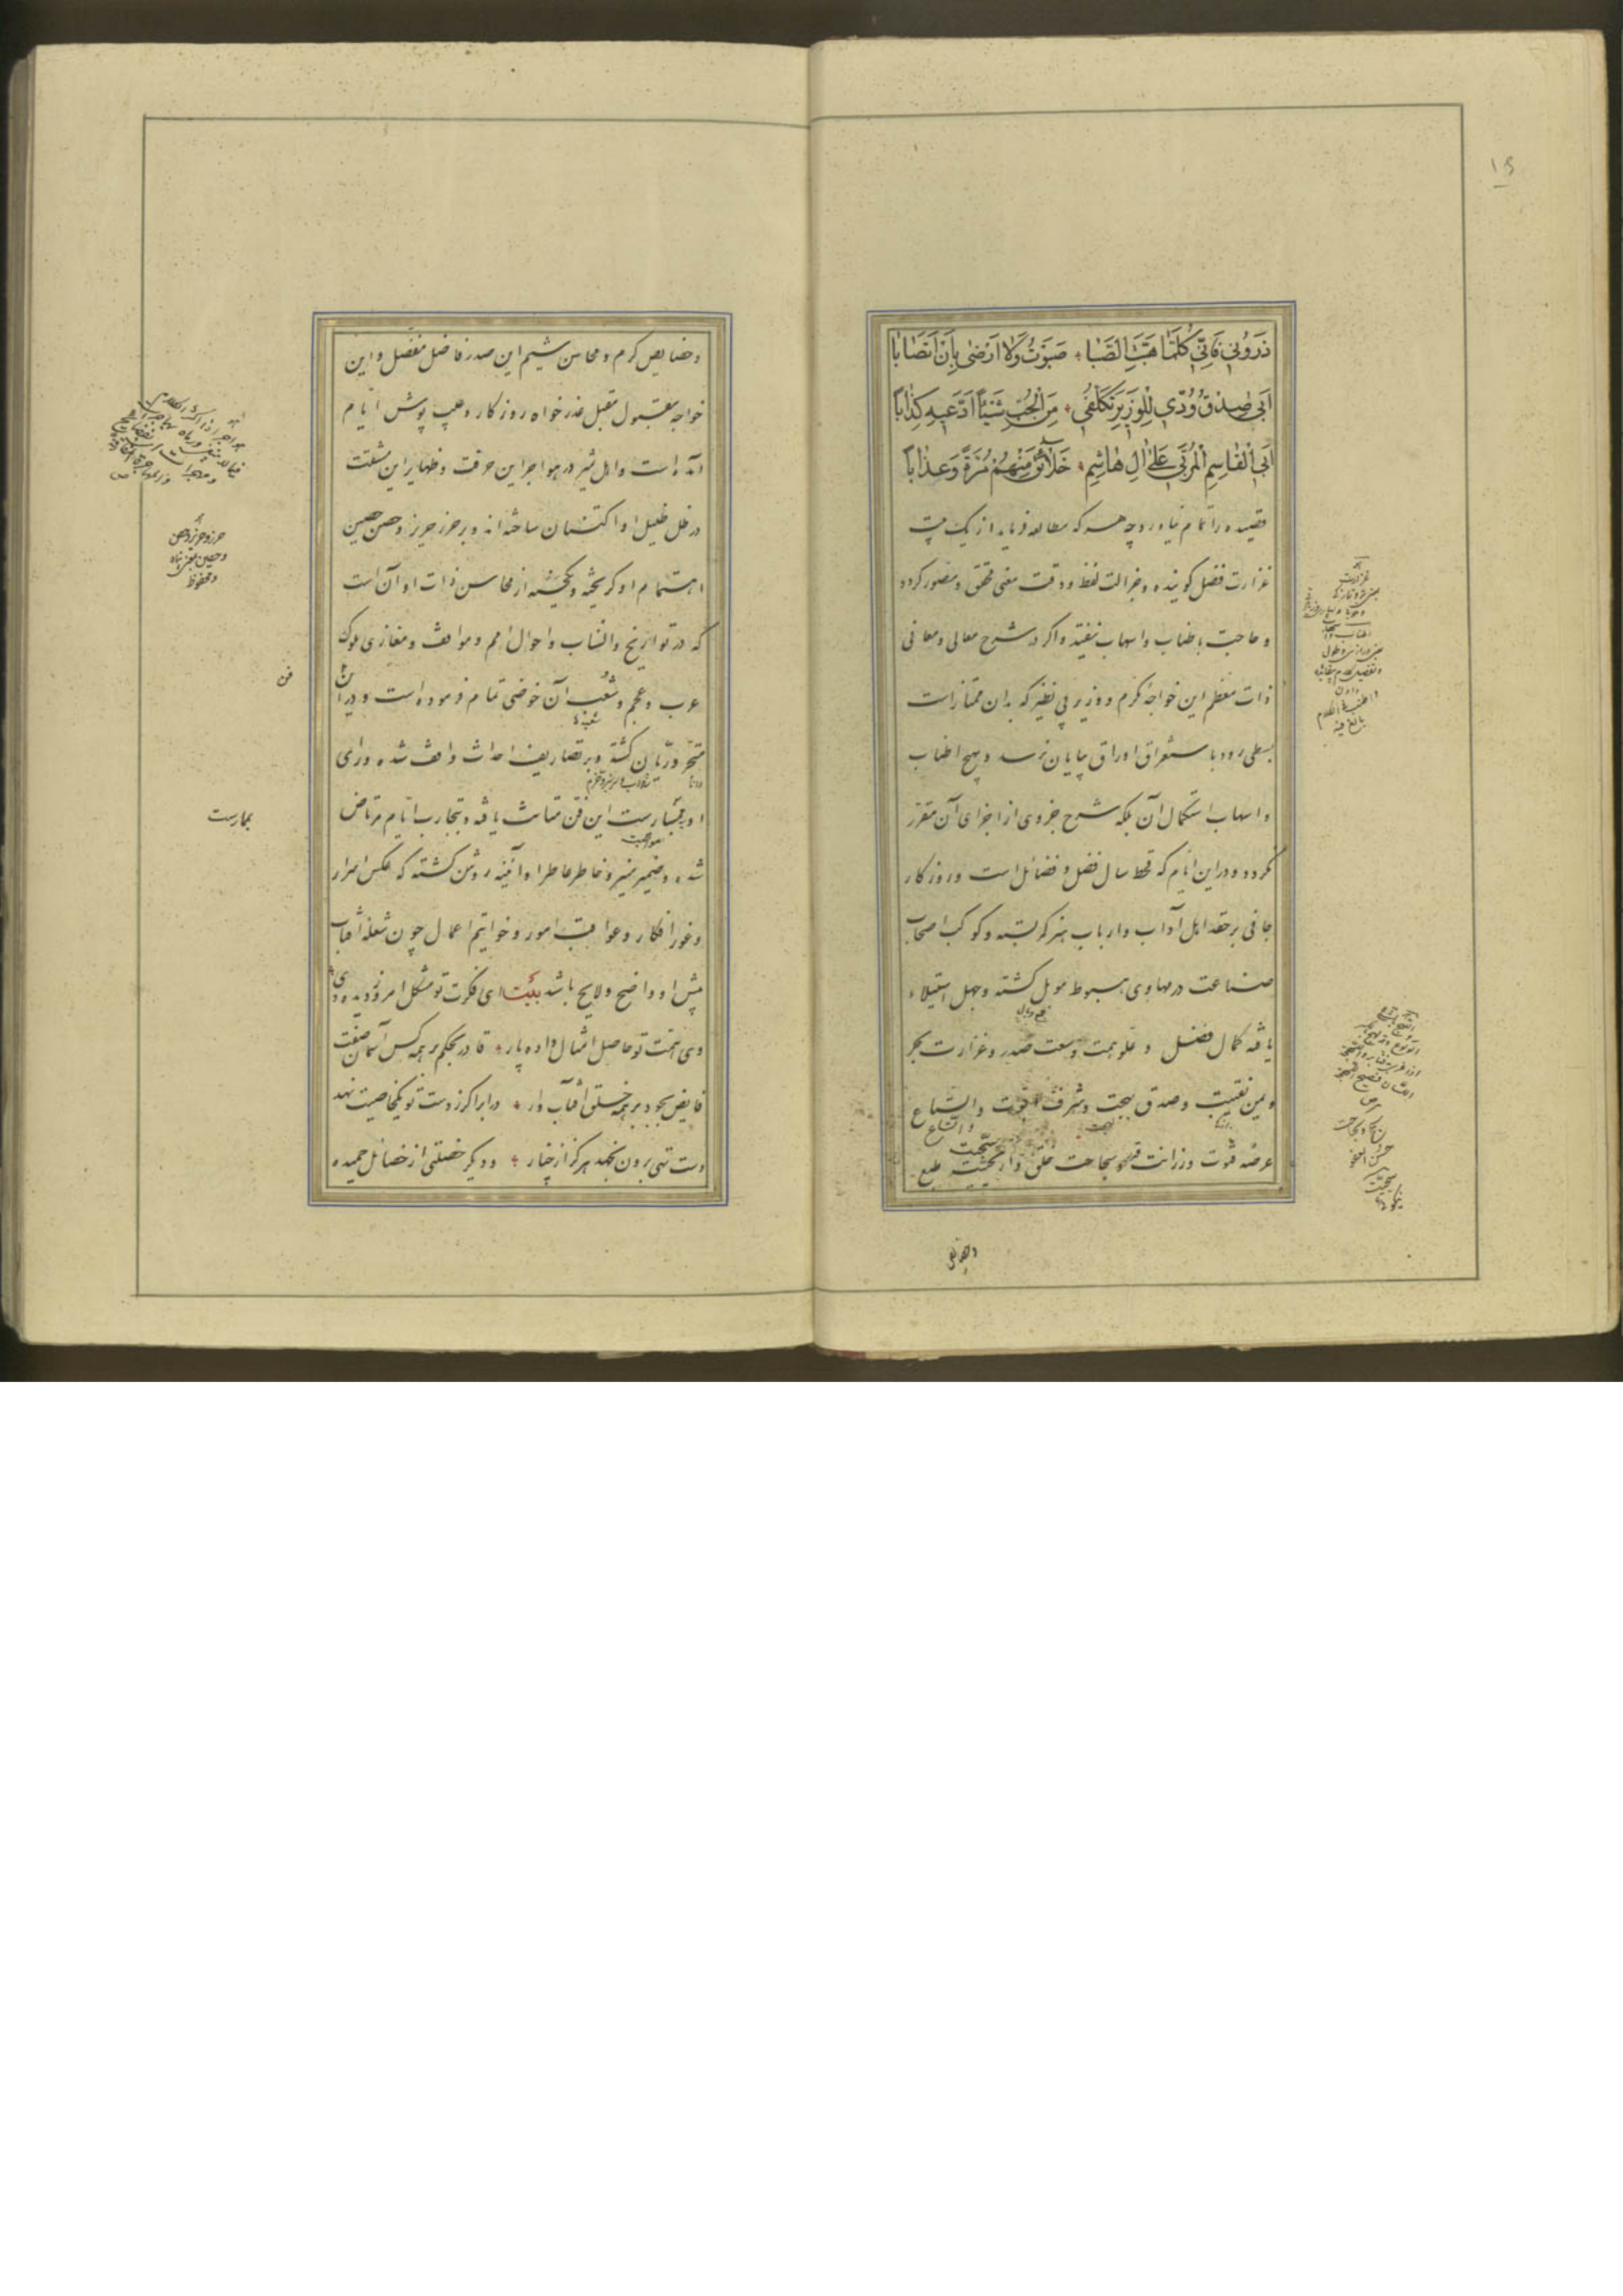 ذَرُونِي فَاِنِّي كُلَّمَا هَبَّتِ الصَّبَا صَبَوْتُ وَلَا اَرْضٰى بِاَنْ اَتَصَابَا
اَبٰى صِدْقُ وُدِّي لِلْوَزِيرِ تَكَلُّفِي مِنَ الْحُبِّ شَيْئًا اَدَّعِيهِ كِذَابًا
اَبِي الْقَاسِمِ الْمُرْبِي عَلٰى اٰلِ هَاشِمٍ خَلَائِقُ مِنْهُمْ مُزَّةً وَعِذَابًا
قصیده را تمام نیاورد چه هر که مطالعه فرماید از یک بیت
غزارت فضل کوینده و جزالت لفظ و دقت معنی محقق و متصور کردد
و حاجت باطناب و اسهاب نیفتد و اکر در شرح معالی و معانی
ذات معظم این خواجه مکرم و وزیر بی نظیر که بدان ممتاز است
بسطی رود باستغراق اوراق بپایان نرسد و بهیچ اطناب
و اسهاب استکمال آن بلکه شرح جزوی از اجزای آن مقرر
نکردد و در این ایام که قحط سال فضل و فضائل است و روزکار
جافی بر حقد اهل آداب و ارباب هنر کمر بسته و کوکب اصحاب
صناعت در مهاوی هبوط موبل کشته و جهل استیلاء
یافته کمال فضل و علو همت و سعت صدر و غزارت بحر
و یمن نقیبت و صدق لهجت و شرف ابوت و اتساع
عرصه فتوت و رزانت قدر و سجاحت خلق و اریحیت طبع
و خصایص کرم و محاسن شیم این صدر فاضل مفضل و این
خواجه مقبول مقبل عذر خواه روزکار و عیب پوش ایام
آمده است و اهل هنر در هواجر این حرفت و ظهایر این مشقت
در ظل ظلیل او اکتنان ساخته اند و بحرز حریز و حصن حصین
اهتمام او کریخته و یکی از محاسن ذات او آن است
که در تواریخ و انساب و احوال امم و مواقف و مغازی ملوک
عرب و عجم و شعب آن خوضی تمام فرموده است و در آن
متبحر و ریان کشته و بر تصاریف احداث واقف شده و رای
او بممارست این فن متانت یافته و بتجارب ایام مرتاض
شده و ضمیر منیر و خاطر عاطر او آئینه روشن کشته که عکس اسرار
و غور افکار و عواقب امور و خواتیم اعمال چون شعله آفتاب
پیش او واضح و لایح باشد بیت ای فکرت تو مشکل امروز دیده دی
وی همت تو حاصل امسال داده پار قادر بحکم بر همه کس آسمان صفت
فایض بجود بر همه خلق آفتاب وار در ابر اکر ز دست تو یک خاصیت نهند
دست تهی برون نجهد هرکز از چنار و دیکر خصلتی از خصائل حمیده
بممارست
فن